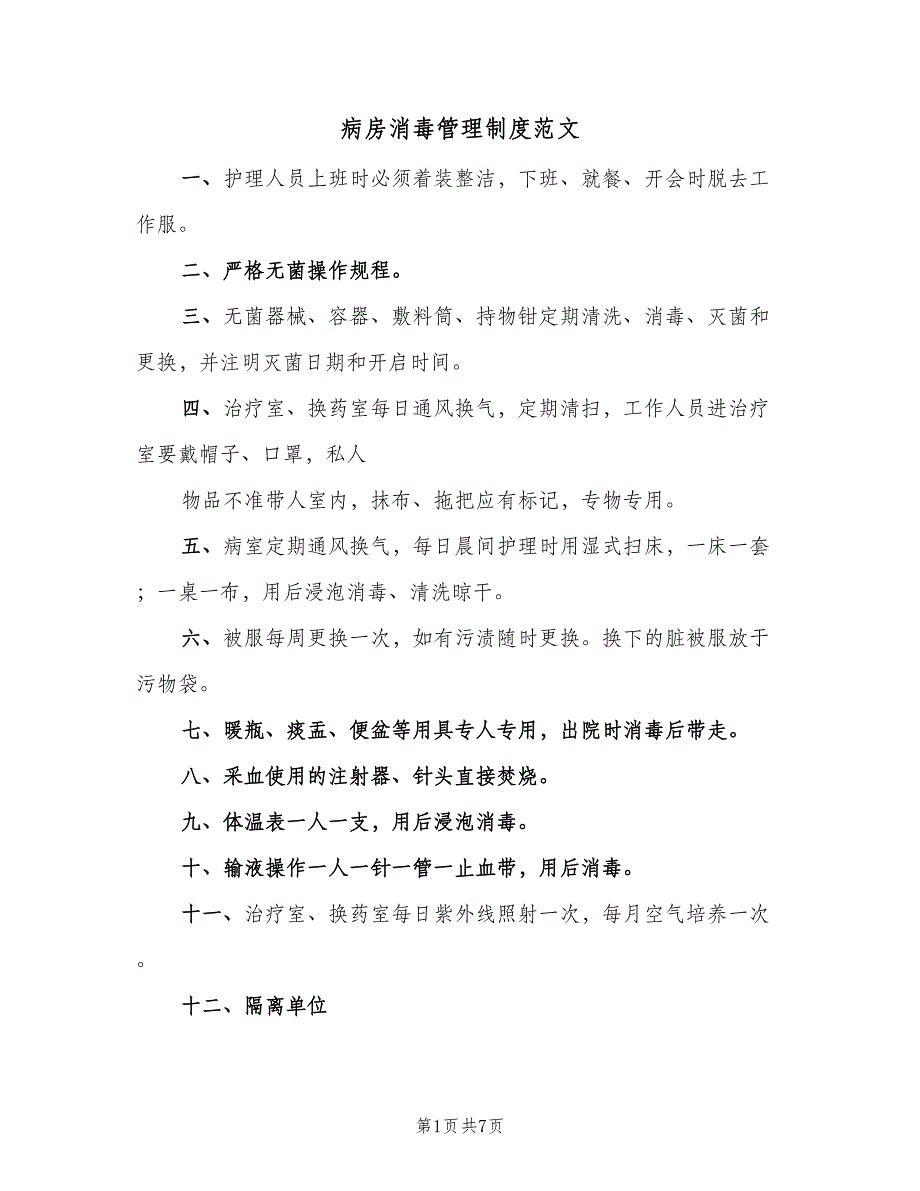 病房消毒管理制度范文
一、护理人员上班时必须着装整洁，下班、就餐、开会时脱去工
作服。
二、严格无菌操作规程。
三、无菌器械、容器、敷料筒、持物钳定期清洗、消毒、灭菌和
更换，并注明灭菌日期和开启时间。
四、治疗室、换药室每日通风换气，定期清扫，工作人员进治疗
室要戴帽子、口罩，私人
物品不准带人室内，抹布、拖把应有标记，专物专用。
五、病室定期通风换气，每日晨间护理时用湿式扫床，一床一套
；一桌一布，用后浸泡消毒、清洗晾干。
六、被服每周更换一次，如有污渍随时更换。换下的脏被服放于
污物袋。
七、暖瓶、痰盂、便盆等用具专人专用，出院时消毒后带走。
八、采血使用的注射器、针头直接焚烧。
九、体温表一人一支，用后浸泡消毒。
十、输液操作一人一针一管一止血带，用后消毒。
十一、治疗室、换药室每日紫外线照射一次，每月空气培养一次
。
十二、隔离单位
第1页共7页